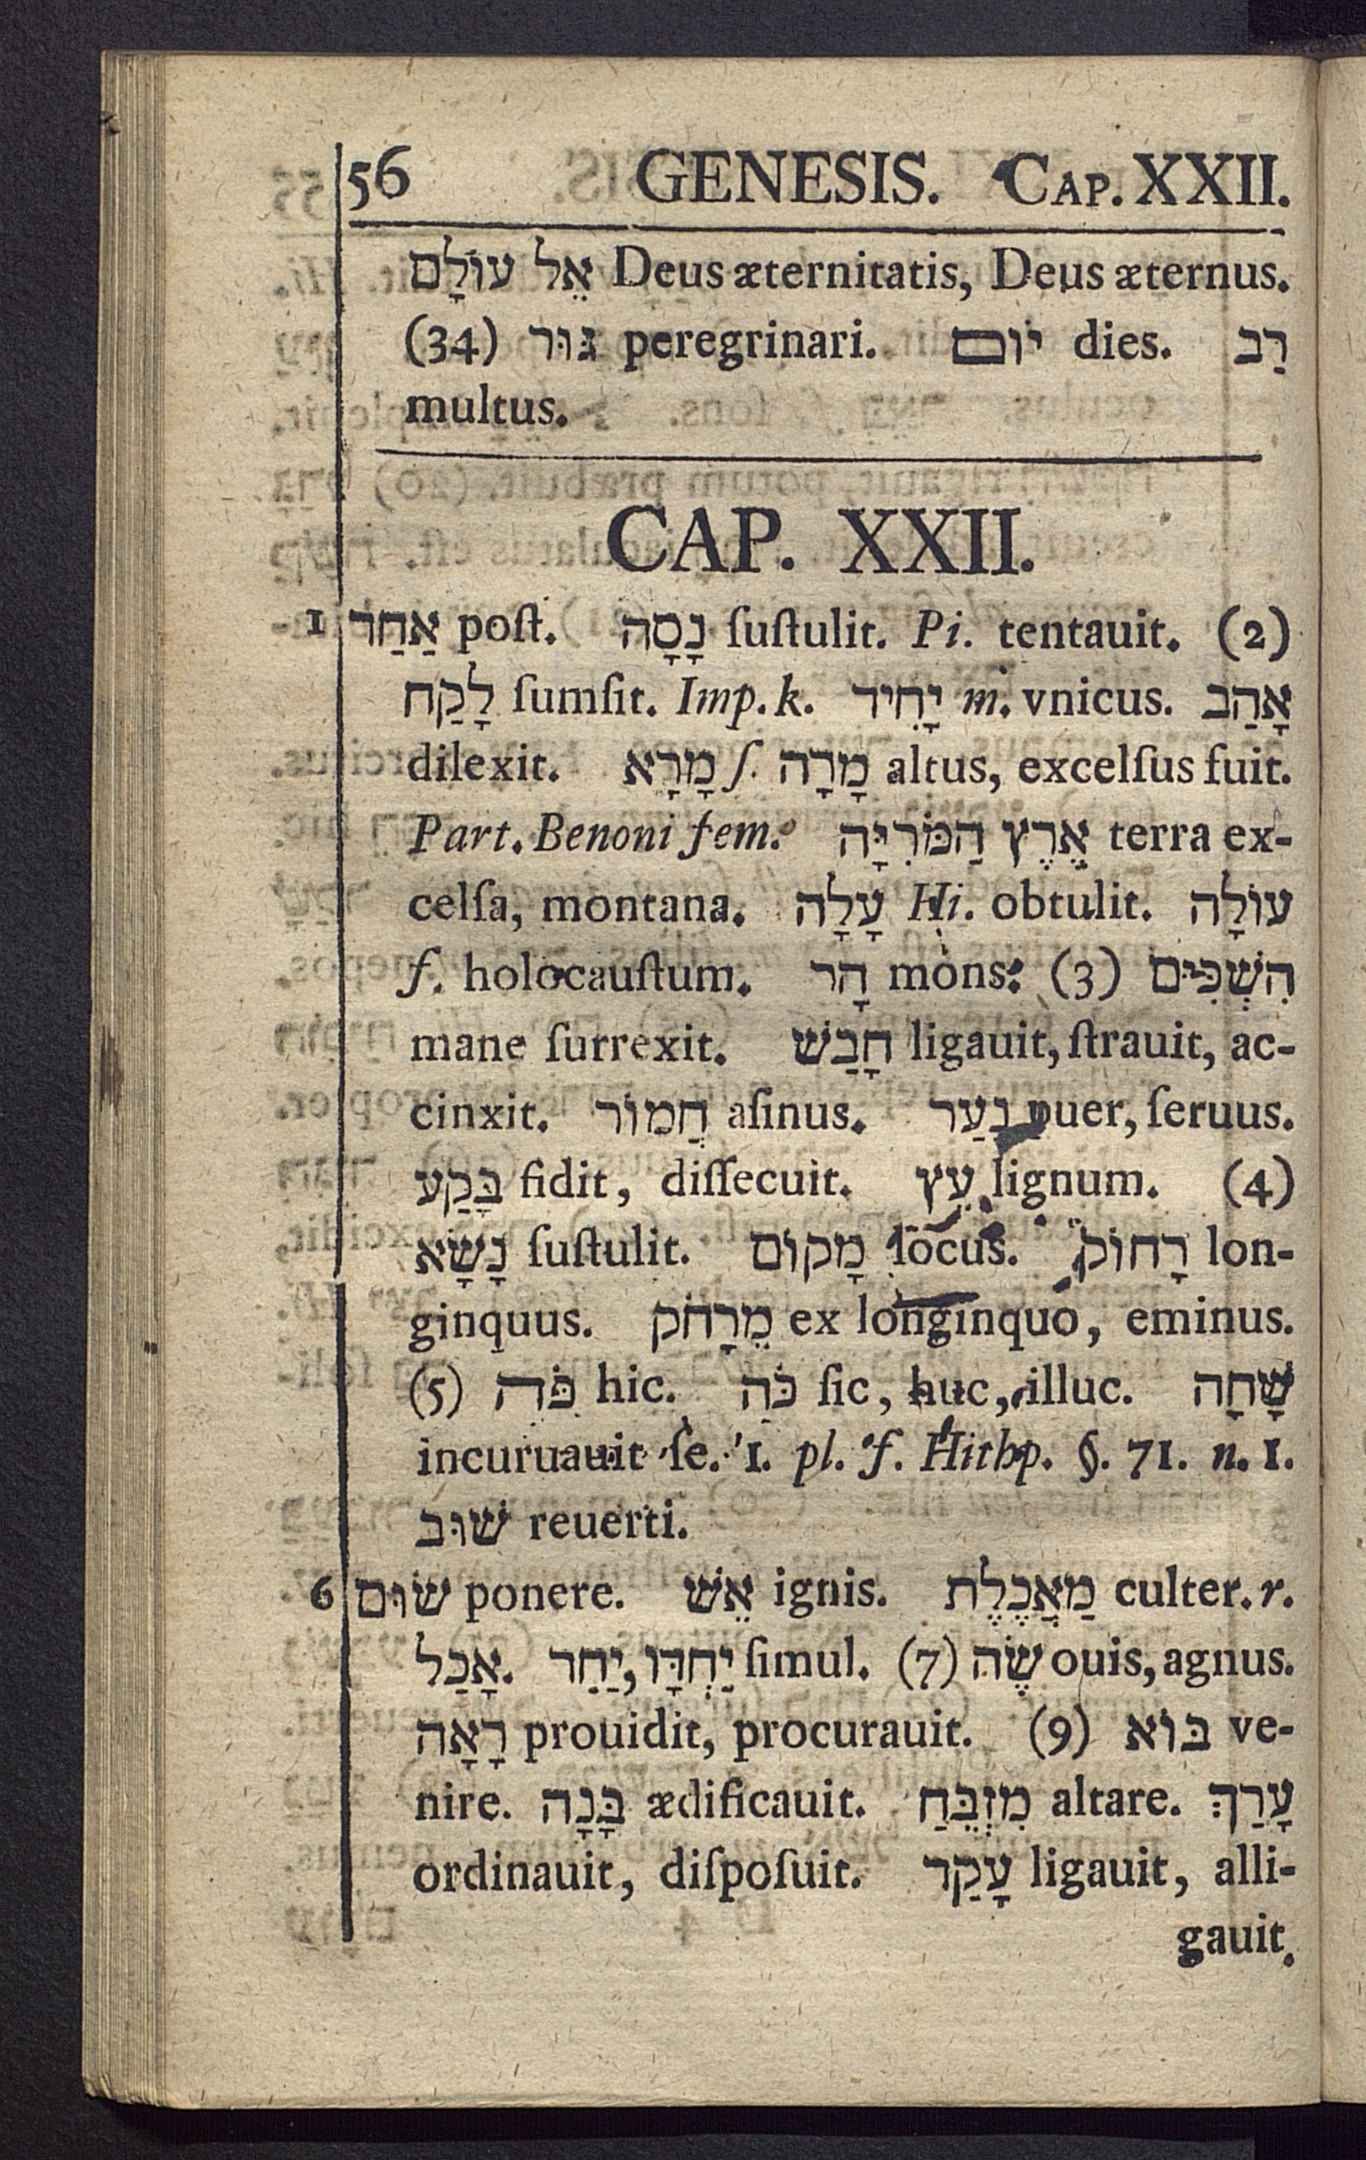 56 GENESIS. CAP. XXII.
אֵל עוֹלָם Deus æternitatis, Deus æternus.
(34) גּוּר peregrinari. יוֹם dies. רַב
multus.
CAP. XXII.
1 אַחַר poſt. נָסָה ſuſtulit. Pi. tentauit. (2)
לָקַח ſumſit. Imp. k. יָחִיד m. vnicus. אָהַב
dilexit. מָרָא ſ. מָרָה altus, excelſus fuit.
Part. Benoni fem. אֶרֶץ הַמֹּרִיָּה terra ex-
celſa, montana. עָלָה Hi. obtulit. עוֹלָה
f. holocauſtum. הָר mons. (3) הִשְׁכִּים
mane ſurrexit. חָבַשׁ ligauit, ſtrauit, ac-
cinxit. חֲמוֹר aſinus. נַעַר puer, ſeruus.
בָּקַע fidit, diſſecuit. עֵץ lignum. (4)
נָשָׂא ſuſtulit. מָקוֹם locus. רָחוֹק lon-
ginquus. מֵרָחֹק ex longinquo, eminus.
(5) פֹּה hic. כֹּה ſic, huc, illuc. שָׁחָה
incuruauit ſe. 1. pl. f. Hithp. §. 71. n. 1.
שׁוּב reuerti.
6 שׂוּם ponere. אֵשׁ ignis. מַאֲכֶלֶת culter. r.
אָכַל. יַחְדָּו, יַחַר ſimul. (7) שֶׂה ouis, agnus.
רָאָה prouidit, procurauit. (9) בּוֹא ve-
nire. בָּנָה ædificauit. מִזְבֵּחַ altare. עָרַךְ
ordinauit, diſpoſuit. עָקַר ligauit, alli-
gauit.